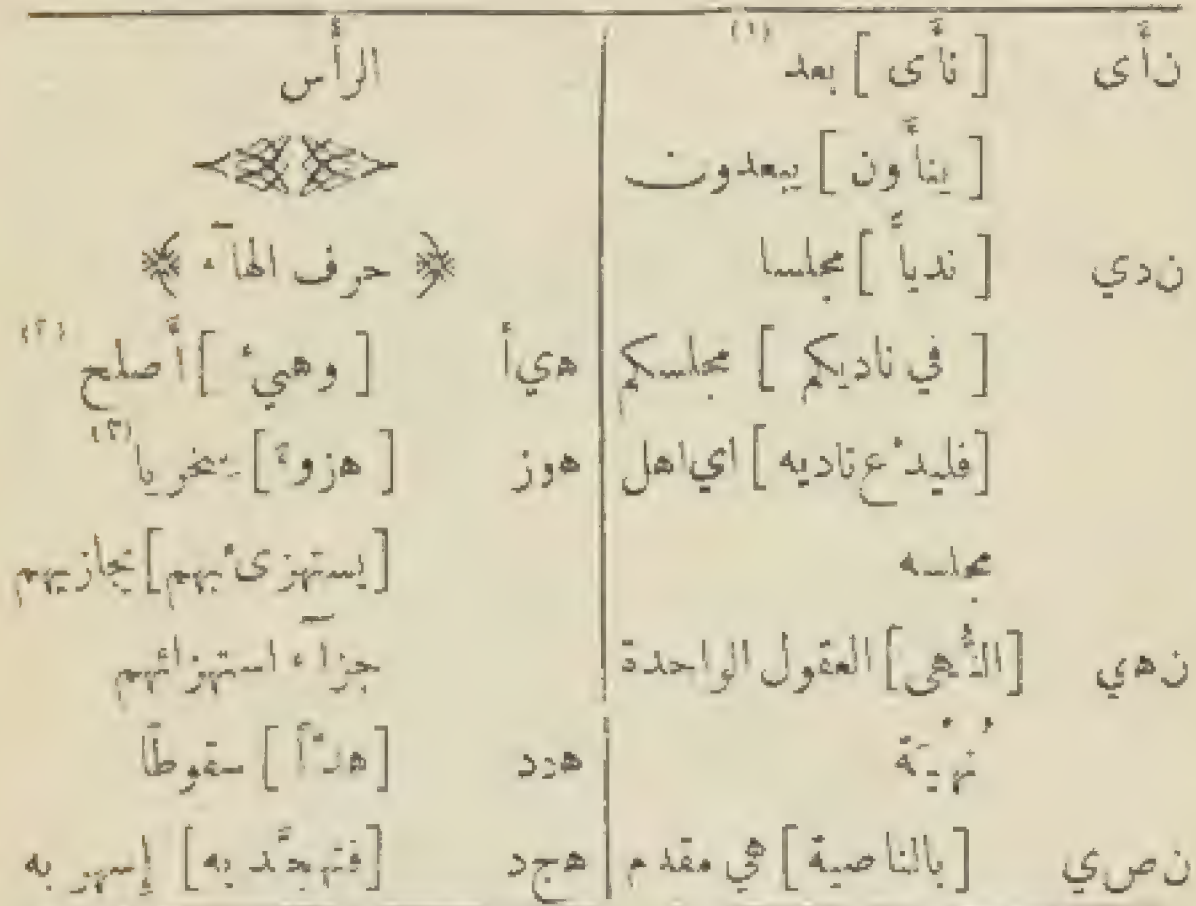 نأي [نأى] بعد (١)
[ينأون] يبعدون
ن‌دي [ندياً] مجلسا
[في ناديكم] مجلسكم
[فليدْع ناديه] اي اهل
مجلسه
ن‌هي [النُّهى] العقول الواحدة
نُهْيَة
ن‌صي [بالناصية] هي مقدم
الرأس
حرف الهآء
هيأ [وهيئ] أصلح (٢)
هوز [هزوءً] سخريا (٣)
[يستهزئ بهم] يجازيهم
جزآء استهزائهم
هدد [هدّاً] سقوطاً
هجد [فتهجَّد به] إسهر به